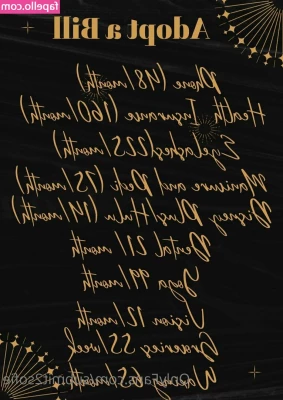 fapello.com
Adopt a Bill
Phone (48/month)
Health Insurance (160/month)
Eyelashes(225/month)
Manicure and Pedi (75/month)
Disney Plus/Hulu (14/month)
Dental 21/month
Yoga 99/month
Vision 12/month
Groceries 55/week
Waxing 65/month
OnlyFans.com/submit2sofie